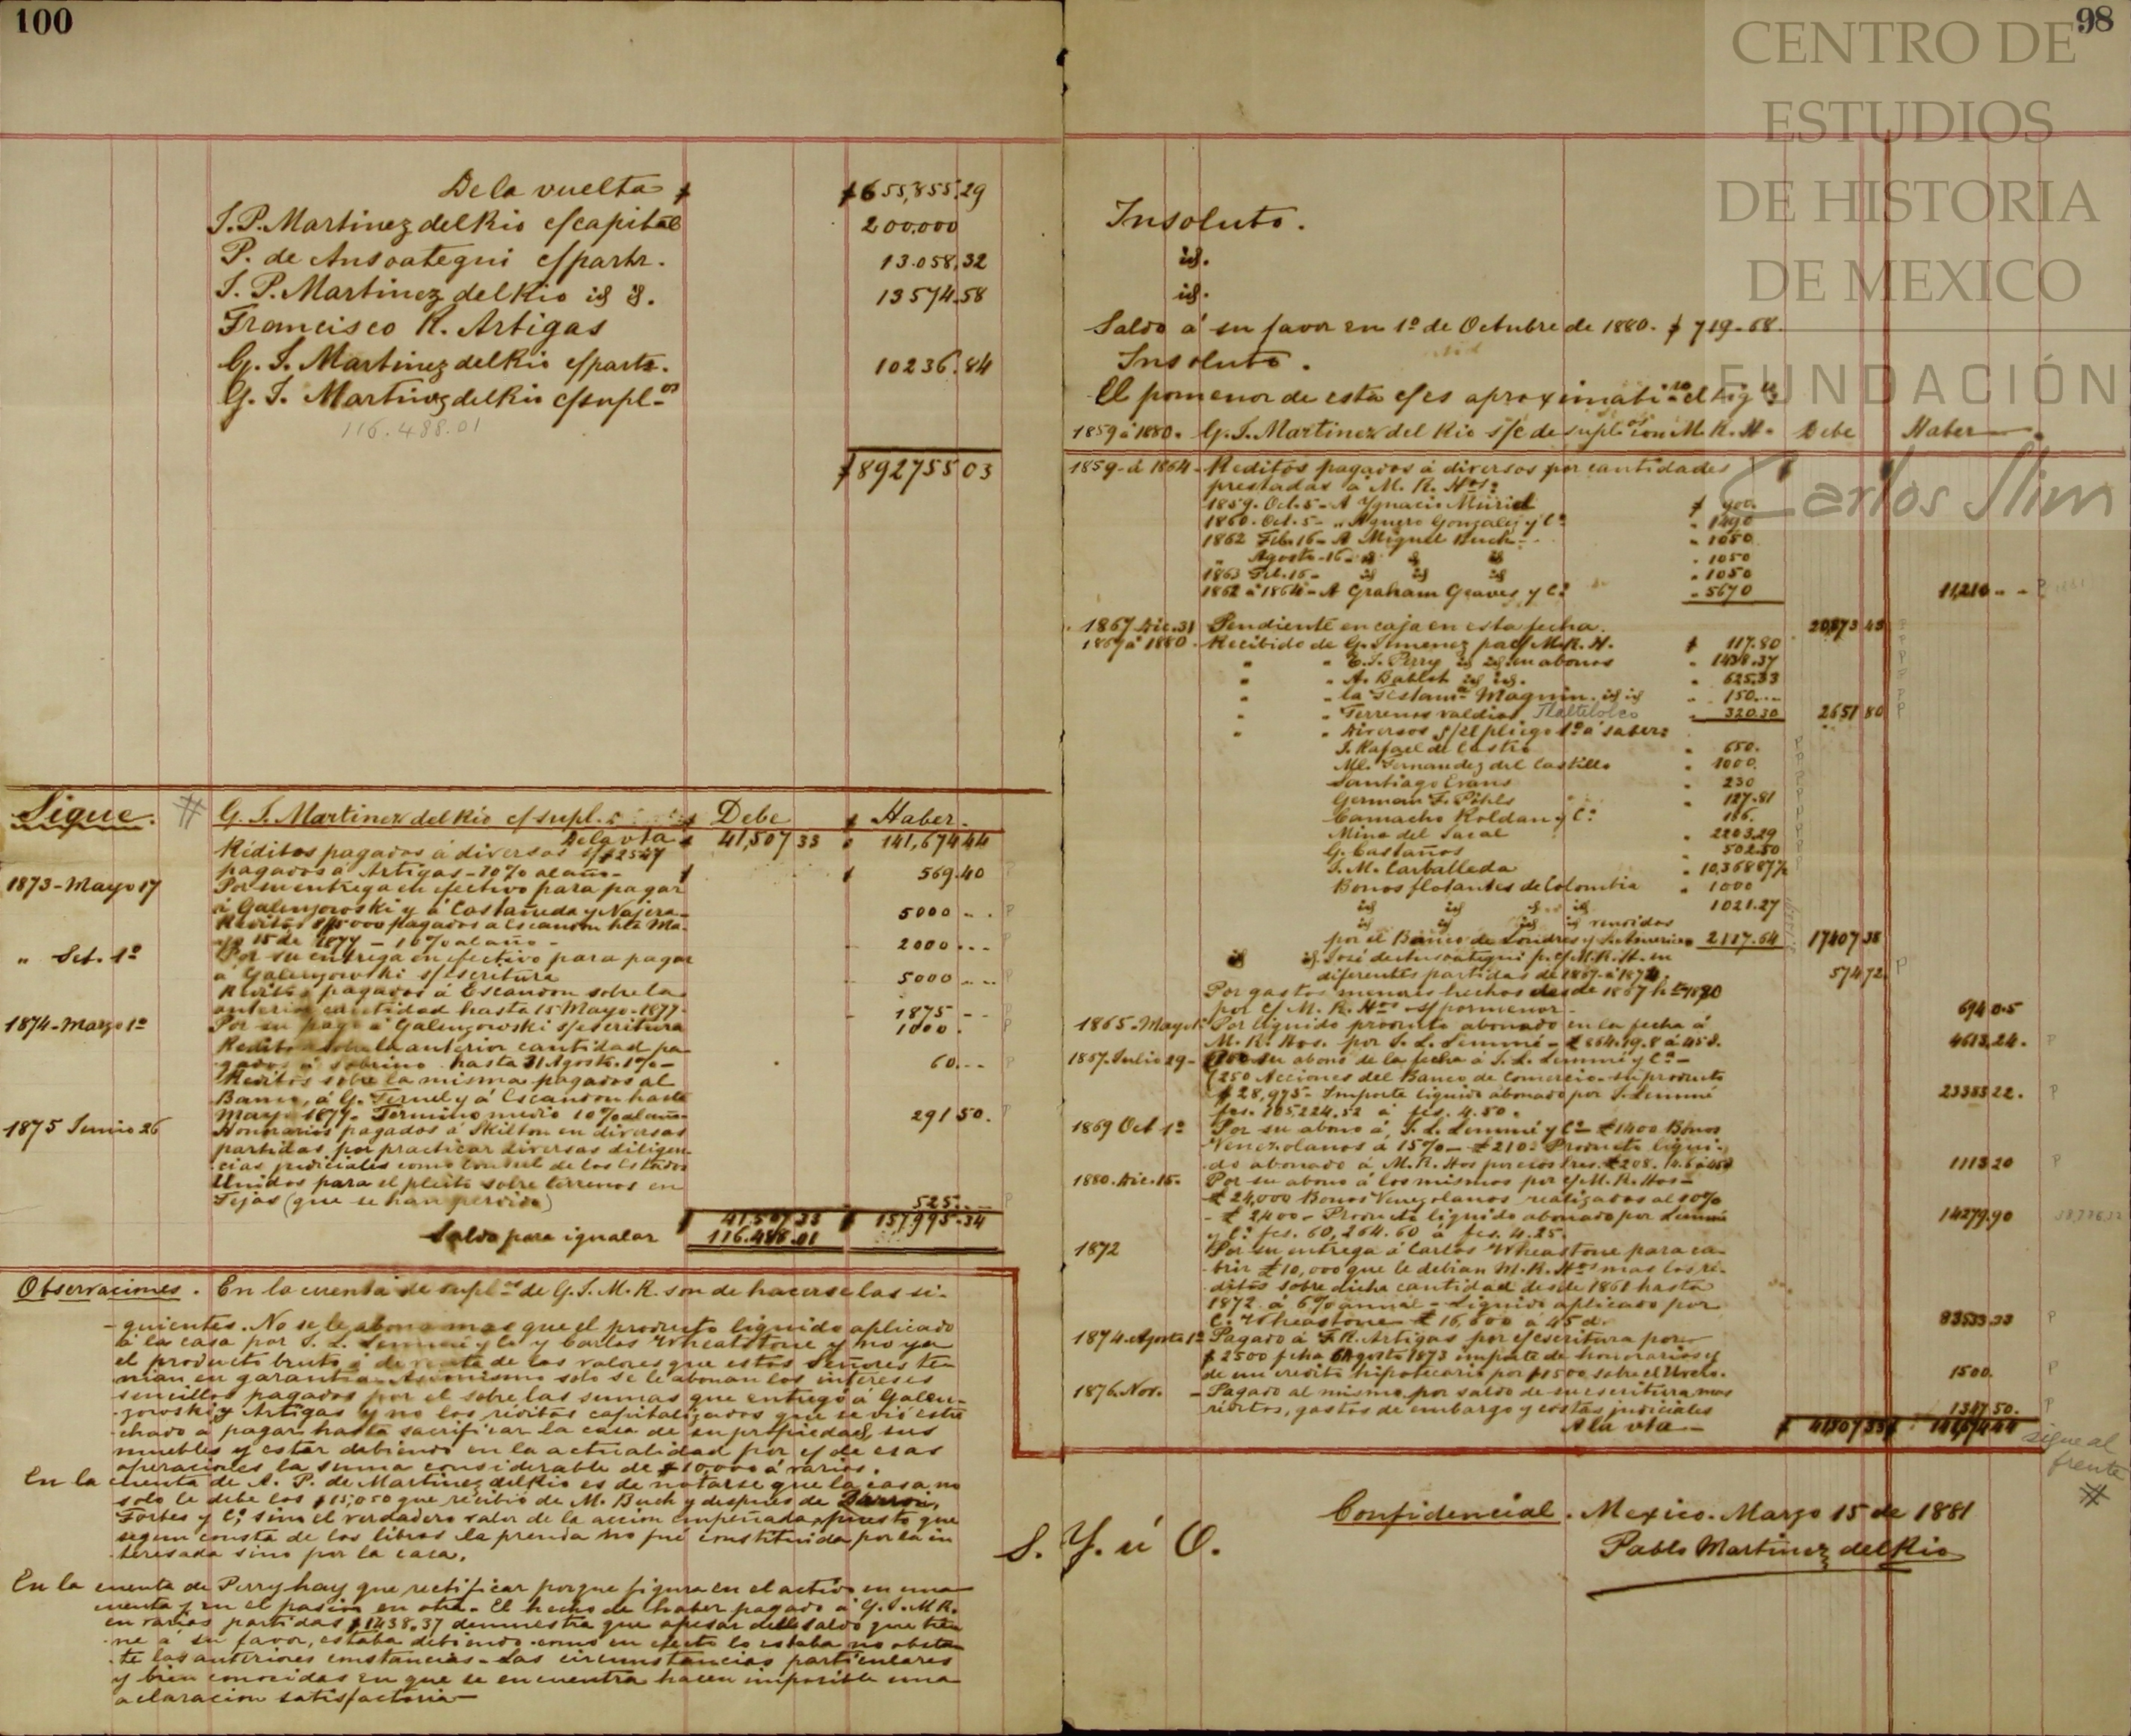 100
De la vuelta $ $655,855.29
J. P. Martinez del Rio c/capital 200.000
P. de Ansoategui c/partr. 13.058,32
J. P. Martinez del Rio id id. 13574.58
Francisco R. Artigas
G. J. Martinez del Rio c/partr. 10236.84
G. J. Martinez del Rio c/supl.os
116.488.01
$892755 03
Sigue. # G. J. Martinez del Rio c/supl. $ Debe $ Haber.
De la vta $ 41,507 33 " 141,674 44
Réditos pagados á diversos
pagados á Artigas - 10% al año - $ $ 569.40
1873 - Mayo 17 Por su entrega en efectivo para pagar
á Galenzowski y á Castañeda y Najera - 5000 -- . P
Reditos $5000 pagados a Escandon hta Ma-
yo 15 de 1877 - 10% al año - 2000 ---
" Set. 1º Por su entrega en efectivo para pagar
á Galenzowski s/escritura 5000 ---
Reditos pagados á Escandon sobre la
anterior cantidad hasta 15 Mayo-1877. 1875 --
1874 - Marzo 1º Por su pago á Galenzowski s/escritura 1000. P
Reditos sobre la anterior cantidad pa-
gados á Sobrino hasta 31 Agosto. 1% - 60 --- P
Reditos sobre la misma pagados al
Banco, á G. Teruel y á Escandon hasta
Mayo 1877. Termino medio 10% al año - 291 50. P
1875 Junio 26 Honorarios pagados á Skilton en diversas
partidas por practicar diversas diligen-
cias judiciales como Consul de los Estados
Unidos para el pleito sobre terrenos en
Tejas (que se han perdido) 525 -- P
$ 41.507 33 $ 157,995.34
Saldo para igualar 116.488.01
Observaciones. En la cuenta de supl.os de G. J. M. R. son de hacerse las si-
guientes. No se le abona mas que el producto liquido aplicado
á la casa por J. L. Lemmé y Ca y Carlos Wheatstone y no ya
el producto bruto ó de venta de los valores que estos Señores te-
nian en garantia. Asimismo solo se le abonan los intereses
sencillos pagados por él sobre las sumas que entregó á Galen-
zowski y Artigas y no los réditos capitalizados que se vió estre-
chado a pagar hasta sacrificar la casa de su propiedad, sus
muebles y estar debiendo en la actualidad por c/ de esas
operaciones la suma considerable de $10,000 á varios.
En la cuenta de A. P. de Martinez del Rio es de notarse que la casa no
solo le debe los $15,050 que recibió de M. Buch y despues de Barron,
Forbes y Ca. sino el verdadero valor de la accion empeñada, puesto que
segun consta de los libros la prenda no fué constituida por la in-
teresada sino por la casa.
En la cuenta de Perry hay que rectificar porque figura en el activo en una
cuenta y en el pasivo en otra. El hecho de haber pagado á G. J. M R.
en varias partidas $1438.37 demuestra que apesar del saldo que tie-
ne á su favor, estaba debiendo como en efecto lo estaba no obstan-
te las anteriores constancias - Las circunstancias particulares
y bien conocidas en que se encuentra hacen imposible una
aclaracion satisfactoria -
98
CENTRO DE
ESTUDIOS
DE HISTORIA
DE MEXICO
FUNDACIÓN
Carlos Slim
Insoluto.
id.
id.
Saldo á su favor en 1º de Octubre de 1880. $ 719-68.
Insoluto.
El pormenor de esta c/ es aproximati el sigte
1859 á 1880. G. J. Martinez del Rio s/c de supl.os con M. R. H. Debe Haber
1859 - á 1864 - Reditos pagados á diversos por cantidades
prestadas á M. R. Hos:
1859. Oct. 5 - A Ygnacio Muriel $ 900.
1860. Oct. 5 - " Aguero Gonzalez y Ca " 1490
1862 Feb. 16 - A Miguel Buch - " 1050
" Agosto - 16 - id id id " 1050
1863 Feb. 16 - id id id " 1050
1862 á 1864 - A Graham Geaves y Ca " 5670 11,210 -- P
1867 Dic. 31 Pendiente en caja en esta fecha.
1867 á 1880. Recibido de G. Jimenez por c/ M. R. H. $ 117.80
" " E. J. Perry id id. en abonos " 1438.37
" " A. Bablot id id. " 625.33
" " la Testam.a Magnin. id id " 150 ---
" " Terrenos valdios Tlaltelolco " 320.30 2651 80 P
" " Diversos s/ el pliego 1º á saber:
J. Rafael de Castro " 650.
Ml. Fernandez del Castillo " 1000.
Santiago Evans " 230
German F. Pöhls " 127.81
Camacho Roldan y Ca
Mina del Jacal " 2203.29
G. Castaños " 502.50
J. M. Carballeda " 10,368 87½
Bonos flotantes de Colombia " 1000
id id id id 1021.27
id id id id vendidos
por el Banco de Londres y S. America 2117.64 17407 38
id id. José de Ansoategui p. c/ M. R. H. en
diferentes partidas de 1867 á 1874. 574 72. P
Por gastos menores hechos desde 1867 hta 1880
por c/ M. R. Hos s/ pormenor - 694 0.5
1865 - Mayo 1º Por liquido producto abonado en la fecha á
M. R. Hos. por J. L. Lemmé - £864.19.8 á 45 d. 4613.24. P
1867. Julio 29 - Por su abono de la fecha á J. L. Lemmé y Ca -
(250 Acciones del Banco de Comercio - su producto
$28,975 - Importe liquido abonado por J. Lemmé
fcs. 105224.52 á fcs. 4.50. 23383 22. P
1869 Oct 1º Por su abono á J. L. Lemmé y Ca - £1400 Bonos
Venezolanos á 15% - £210 - Producto liqui-
do abonado á M. R. Hos por esos Sres. £208. 14.6 á 45d 1113 20 P
1880. Dic. 15. Por su abono á los mismos por c/ M. R. Hos -
£24,000 Bonos Venezolanos realizados al 10%
- £2400 - Producto liquido abonado por Lemmé
y Ca fcs. 60,264.60 á fcs. 4.25. 14279.90
1872 Por su entrega á Carlos Wheastone para cu-
brir £10,000 que le debian M. R. Hos mas los ré-
ditos sobre dicha cantidad desde 1861 hasta
1872. á 6% anual - Liquido aplicado por
C. Wheastone £ 16,600 á 45 d. P
1874. Agosto 1º Pagado á F. R. Artigas por c/ escritura por
$2500 fcha Agosto 1873 importe de honorarios y
de un credito hipotecario por $1500 sobre el 1500. P
1876. Nov. - Pagado al mismo por saldo de su escritura mas
réditos, gastos de embargo y costas judiciales 1347 50. P
A la vta - $ 41,507 33 $ 141,674.44
sigue al
frente
#
Confidencial. Mexico. Marzo 15 de 1881
S. Y. ú O.
Pablo Martinez del Rio